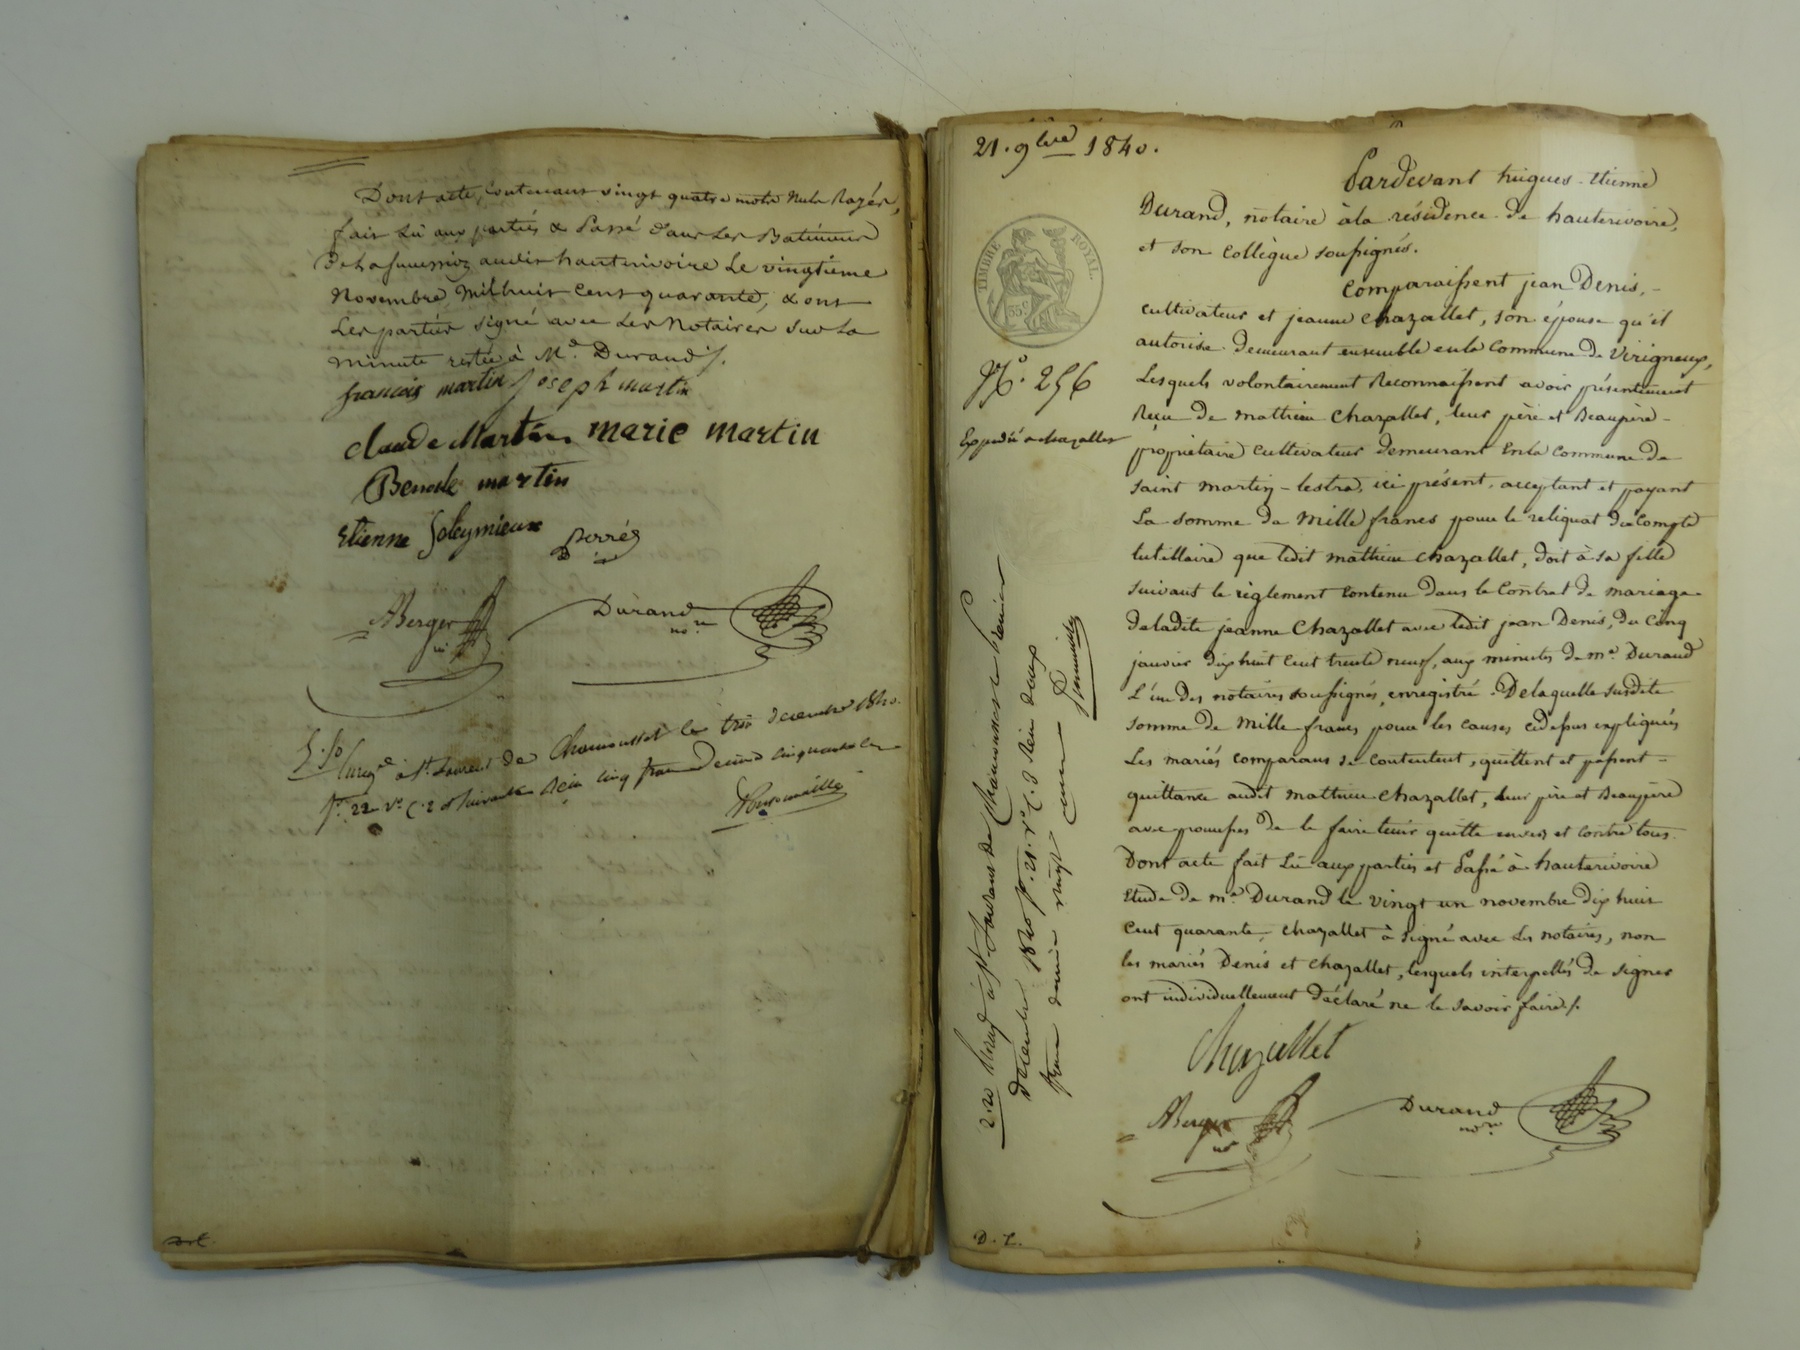 Dont acte, contenant vingt quatre mots nuls Rayés,
fait Lû aux parties & Passé dans Les Batiments
De La audit hauterivoire Le vingtieme
Novembre Mil huit Cent quarante, & ont
Les parties signé avec Les Notaires sur La
Minute restée à Me. Durand /.
francois martin Joseph martin
claude Martin marie martin
Benoite martin
Etienne Soleymieux
ABerger
nre
Durand
nore
Enregé à St. Laurent De Chamousset le trois decembre 1840.
fo. 22 vo. c. 2 & suivantes Reçu cinq francs decime cinquante cen
D. L.
21. 9bre 1840.
TIMBRE ROYAL.
35c.
No. 256
Expedié a chazallet
2.20 Enreg à St Laurent De Chamousset le premier
decembre 1840 fo. 21. ro c. 8 Reçu deux
francs decime vingt cent
Pardevant hugues-Etienne
Durand, notaire à la résidence de hauterivoire,
et son Collègue soussignés.
Comparaissent jean Denis,-
cultivateur et jeanne Chazallet, son épouse qu'il
autorise demeurant ensemble en la Commune de Virigneux,
Lesquels volontairement Reconnaissent avoir présentement
Reçu de mathieu Chazallet, leur père et Beaupère-
propriétaire Cultivateur demeurant En la Commune de
Saint martin-lestra, ici présent, acceptant et payant
La somme de Mille francs pour le reliquat du Compte
tutellaire que ledit mathieu chazallet, doit à sa fille
suivant le règlement contenu dans le Contrat de mariage
de ladite jeanne Chazallet avec ledit jean Denis, du Cinq
janvier dix huit cent trente neuf, aux minutes de me. Durand
L'un des notaires soussignés, enregistré. De laquelle susdite
somme de Mille francs pour les causes cidessus expliquées
Les mariés comparans se contentent, quittent et passent-
quittance audit mathieu Chazallet, leur père et Beaupère
avec promesses de le faire tenir quitte envers et contre tous.
Dont acte fait Lû aux parties et Passé à hauterivoire
Etude de me. Durand le vingt un novembre dix huit
Cent quarante, Chazallet à signé avec Les notaires, non
les mariés Denis et Chazallet, lesquels interpellés de signer
ont individuellement déclaré ne le savoir faire /.
Chazallet
ABerger
nre
Durand
nore
D. L.